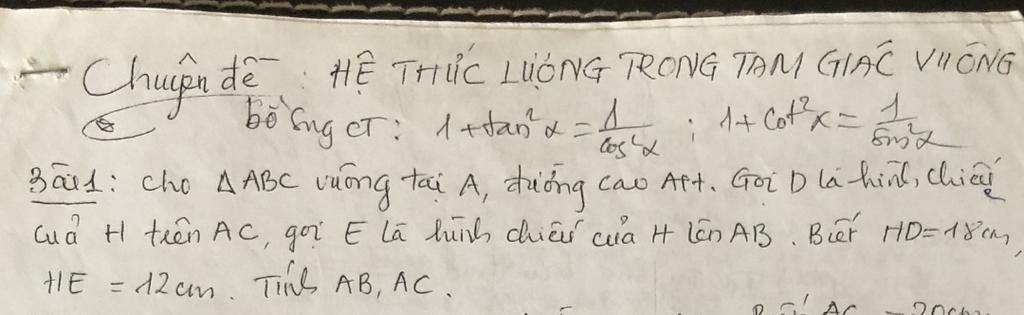 Chuyên đề : HỆ THỨC LƯỢNG TRONG TAM GIÁC VUÔNG
bổ sung CT: 1+tan²α = 1/cos²α ; 1+cot²α = 1/sin²α
Bài 1: cho ΔABC vuông tại A, đường cao AH. Gọi D là hình chiếu
của H trên AC, gọi E là hình chiếu của H lên AB. Biết HD=18cm,
HE = 12cm. Tính AB, AC.
AC = 20cm